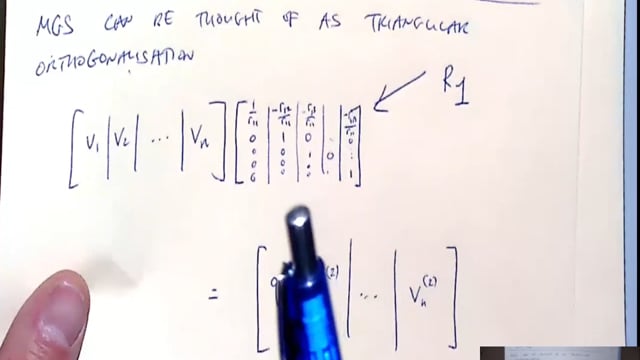 MGS CAN BE THOUGHT OF AS TRIANGULAR
ORTHOGONALISATION
[ V₁ | V₂ | ⋯ | Vₙ ] [ 1/r₁₁ | -r₁₂/r₁₁ | -r₁₃/r₁₁ | | -r₁ₙ/r₁₁ ] R₁
0 1 0 0
0 0 1 0 :
0 0 0 .
0 0 0 1
= [ q | ⁽²⁾ | ... | Vₙ⁽²⁾ ]